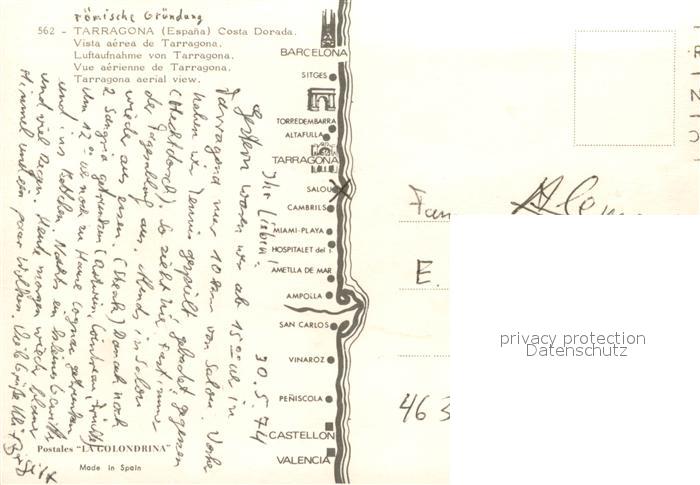 römische Gründung
562 - TARRAGONA (España) Costa Dorada.
Vista aérea de Tarragona.
Luftaufnahme von Tarragona.
Vue aérienne de Tarragona.
Tarragona aerial view.
30.5.74
Ihr Lieben!
Gestern waren wir ab 15 Uhr in
Tarragona nur 10 km von Salou. Vorher
haben wir Tennis gespielt gebadet gegessen
(Hechtdorsch). So sieht hier fast immer
der Tagesablauf aus. Abends in Salou
wieder aus essen. (Steak) Danach noch
2 Sangria getrunken (Rotwein, Cointreau, Früchte)
Um 12 Uhr noch zu Hause Cognac getrunken
und ins Bettchen. Nachts ein
und viel Regen. Heute morgen wieder blauer
Himmel und ein paar Wolken. Viele Grüße
BARCELONA
SITGES
TORREDEMBARRA
ALTAFULLA
TARRAGONA
SALOU
CAMBRILS
MIAMI-PLAYA
HOSPITALET del I.
AMETLLA DE MAR
AMPOLLA
SAN CARLOS
VINAROZ
PEÑISCOLA
CASTELLON
VALENCIA
Postales "LA GOLONDRINA"
Made in Spain
Fam
E.
463
privacy protection
Datenschutz